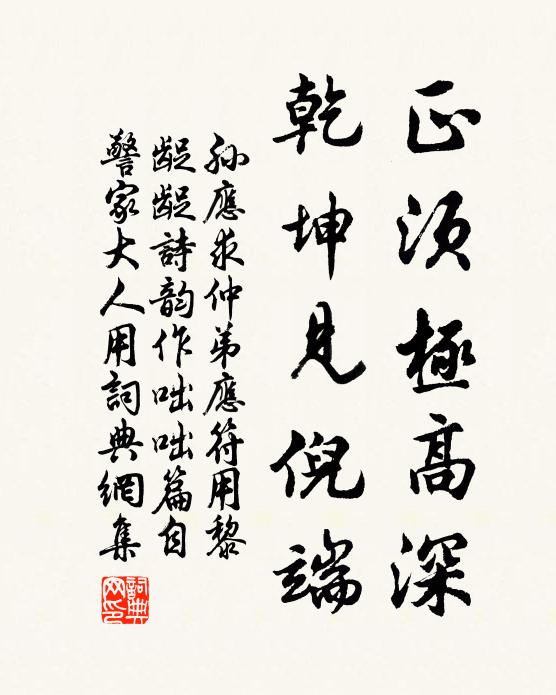 正須極高深
乾坤見倪端
孫應求仲弟應符用黎
齪齪詩韵作咄咄篇自
警家大人用詞典網集
詞典